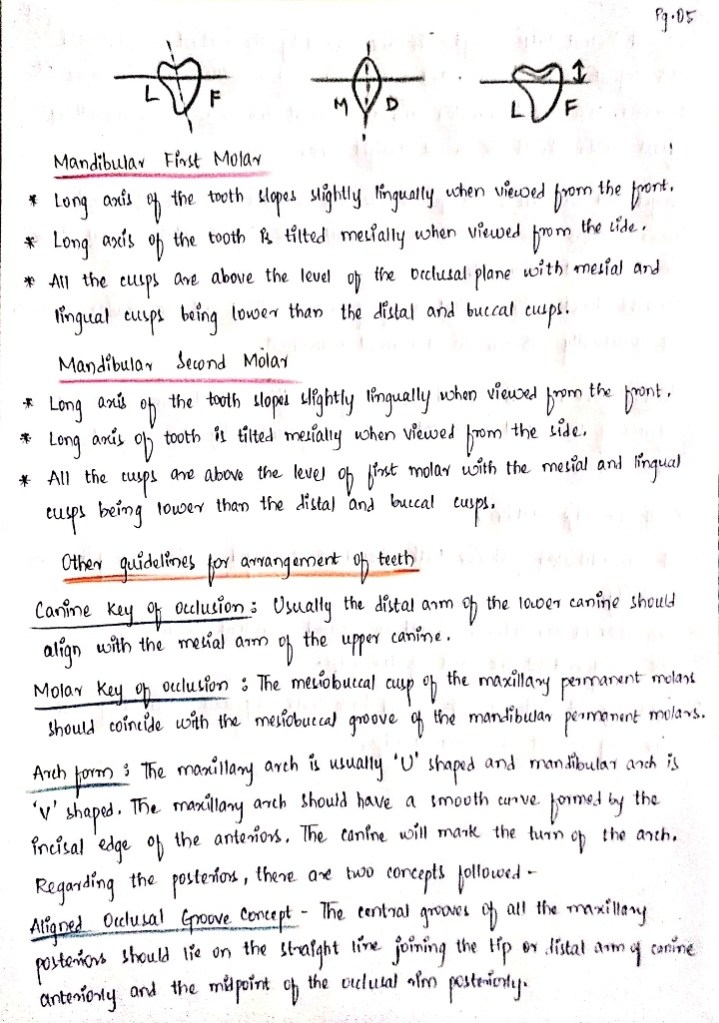 Pg.05
L F M D L F
Mandibular First Molar
* Long axis of the tooth slopes slightly lingually when viewed from the front.
* Long axis of the tooth is tilted mesially when viewed from the side.
* All the cusps are above the level of the occlusal plane with mesial and
lingual cusps being lower than the distal and buccal cusps.
Mandibular Second Molar
* Long axis of the tooth slopes slightly lingually when viewed from the front.
* Long axis of tooth is tilted mesially when viewed from the side.
* All the cusps are above the level of first molar with the mesial and lingual
cusps being lower than the distal and buccal cusps.
Other guidelines for arrangement of teeth
Canine Key of occlusion : Usually the distal arm of the lower canine should
align with the mesial arm of the upper canine.
Molar Key of occlusion : The mesiobuccal cusp of the maxillary permanent molars
should coincide with the mesiobuccal groove of the mandibular permanent molars.
Arch form : The maxillary arch is usually 'U' shaped and mandibular arch is
'V' shaped. The maxillary arch should have a smooth curve formed by the
incisal edge of the anteriors. The canine will mark the turn of the arch.
Regarding the posteriors, there are two concepts followed -
Aligned Occlusal Groove Concept - The central grooves of all the maxillary
posteriors should lie on the straight line joining the tip or distal arm of canine
anteriorly and the midpoint of the occlusal rim posteriorly.